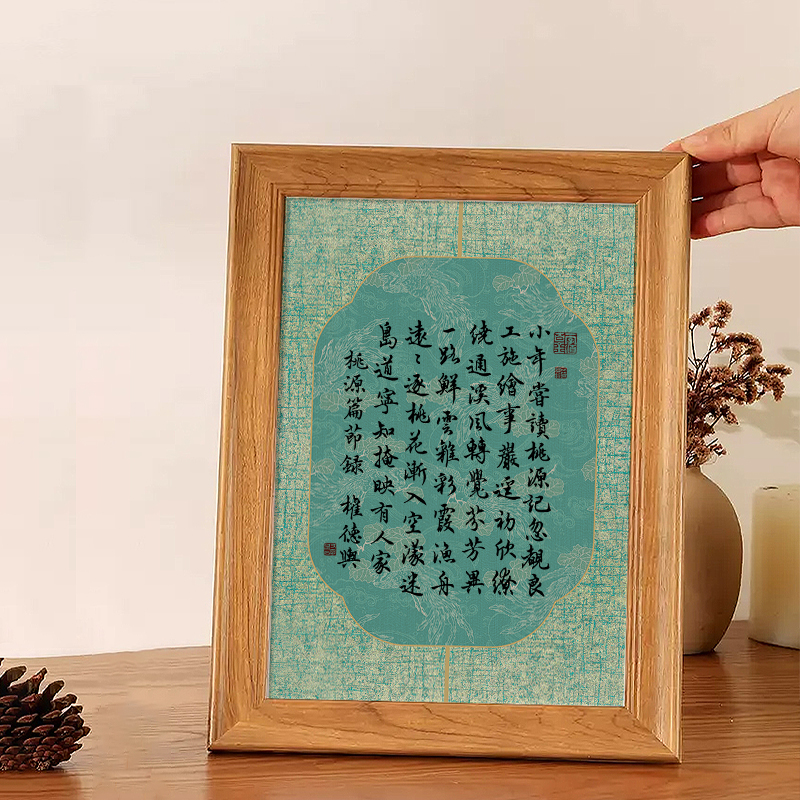 小年嘗讀桃源記忽覩良
工施繪事巖逕初欣繚
繞通溪風轉覺芬芳異
一路鮮雲雜彩霞漁舟
遠〻逐桃花漸入空濛迷
鳥道寧知掩映有人家
桃源篇節録 權德輿